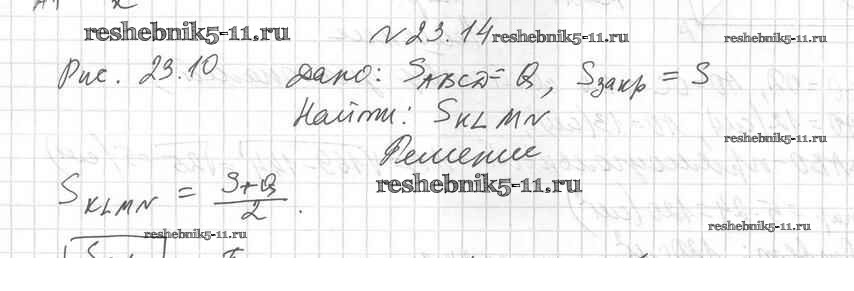 reshebnik5-11.ru
№ 23.14 reshebnik5-11.ru
Рис. 23.10 Дано: SABCD = Q, Sзакр = S
Найти: SKLMN
reshebnik5-11.ru
Решение
SKLMN = S+Q / 2 .
reshebnik5-11.ru
reshebnik5-11.ru
reshebnik5-11.ru